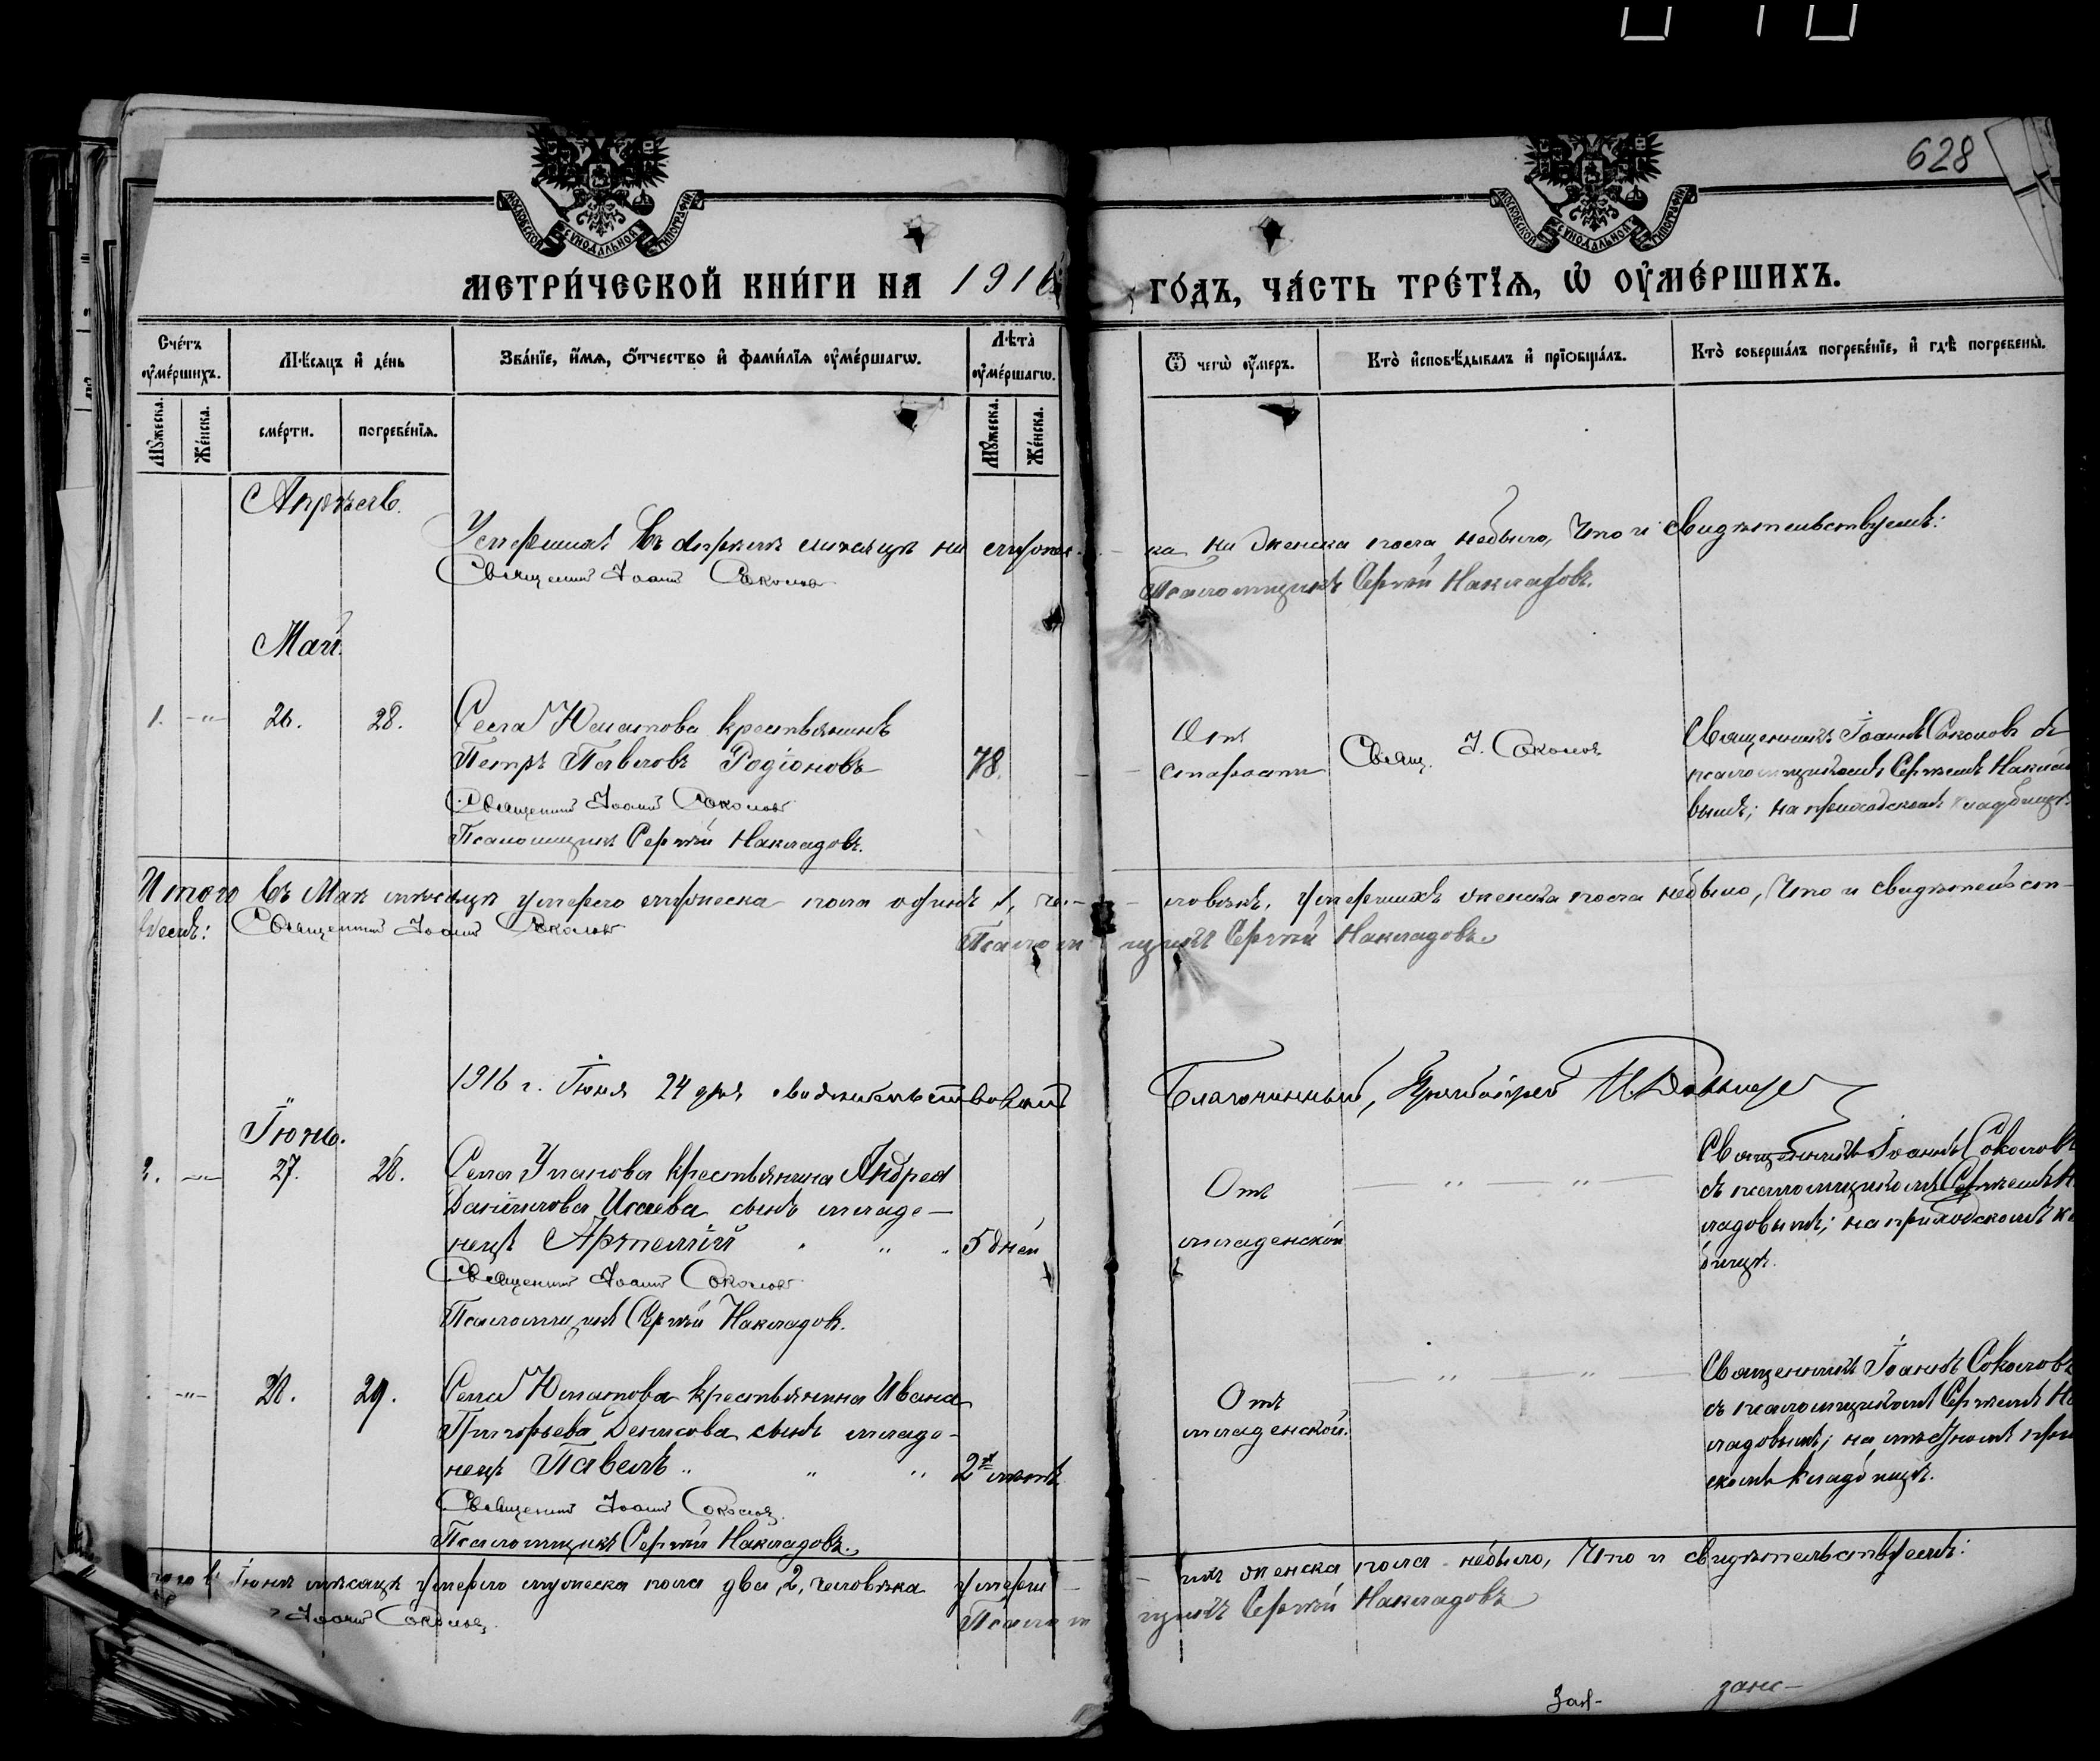 628
МОСКОВСКОЙ СУНОДАЛЬНОЙ ТИПОГРАФІИ
МОСКОВСКОЙ СУНОДАЛЬНОЙ ТИПОГРАФІИ
МЕТРИ́ЧЕСКОЙ КНИ́ГИ НА 1916 ГО́ДЪ, ЧА́СТЬ ТРЕ́ТЇѦ, Ѿ ОУ҆МЕ́РШИХЪ.
Сче́тъ оу҆ме́ршихъ.
Мѣ́сѧцъ и҆ де́нь
Зва́нїе, и҆́мѧ, ѻ҆́тчество и҆ фами́лїѧ оу҆ме́ршагѡ.
Лѣ́та оу҆ме́ршагѡ.
Ѿ чегѡ̀ оу҆́меръ.
Кто̀ и҆сповѣ́дывалъ и҆ прїѻбща́лъ.
Кто̀ соверша́лъ погребе́нїе, и҆ гдѣ̀ погребены̀.
Мꙋ́жеска.
Же́нска.
сме́рти.
погребе́нїѧ.
Мꙋ́жеска.
Же́нска.
Апрѣль.
Умершихъ въ апрѣлѣ мѣсяцѣ ни мужес- ка ни женска пола небыло, Что и свидѣтельствуемъ:
Священникъ Іоаннъ Соколовъ
Псаломщикъ Сергѣй Накладовъ.
Май.
1. -"- 26. 28. Села Юматова крестьянинъ
Петръ Павловъ Родіоновъ 78.
Священникъ Іоаннъ Соколовъ
Псаломщикъ Сергѣй Накладовъ.
Отъ
старости
Свящ. І. Соколовъ
Священникъ Іоаннъ Соколовъ съ
псаломщикомъ Сергѣемъ Накла
вымъ; на приходскомъ кладбищѣ.
Итого въ Маѣ мѣсяцѣ умерло мужеска пола одинъ 1, че- ловѣкъ, умершихъ женска пола небыло, Что и свидѣтельст-
вуемъ: Священникъ Іоаннъ Соколовъ Псаломщикъ Сергѣй Накладовъ
1916 г. Іюня 24 дня свидѣтельствовалъ Благочинный, Протоіерей
Іюнь.
2. -"- 27. 28. Села крестьянина Андрея
Данiилова Исаева сынъ младе-
нецъ Артемій " " 5 дней
Священникъ Іоаннъ Соколовъ
Псаломщикъ Сергѣй Накладовъ.
Отъ
младенской
-"- -"-
Священникъ Іоаннъ Соколовъ
съ псаломщикомъ Сергѣемъ Н
ладовымъ; на приходскомъ к
бищѣ.
-"- 28. 29. Села Юматова крестьянина Ивана
Григорьева Денисова сынъ младе-
нецъ Павелъ " " " 2хъ лѣтъ
Священникъ Іоаннъ Соколовъ
Псаломщикъ Сергѣй Накладовъ.
Отъ
младенской.
-"- -"-
Священникъ Іоаннъ Соколовъ
съ псаломщикомъ Сергѣемъ На
ладовымъ; на мѣстномъ при
скомъ кладбищѣ.
Іюнѣ мѣсяцѣ умерло мужеска пола два, 2, человѣка умерш- ихъ женска пола небыло, Что и свидѣтельствуемъ:
Іоаннъ Соколовъ Псаломщикъ Сергѣй Накладовъ